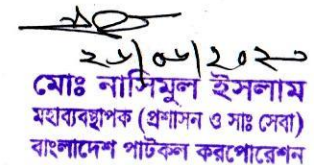 ২৮/০৬/২০২০
মোঃ নাসিমুল ইসলাম
মহাব্যবস্থাপক (প্রশাসন ও সাঃ সেবা)
বাংলাদেশ পাটকল করপোরেশন